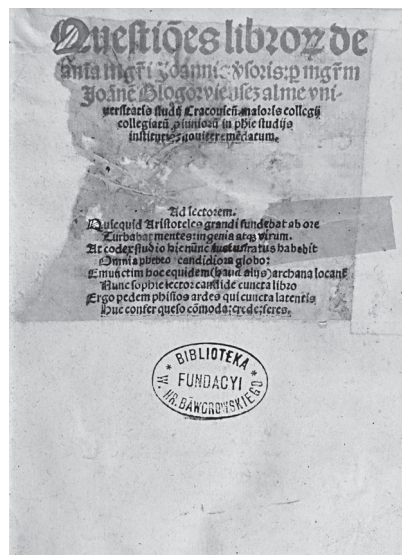 Questiões libroꝝ de
aĩa mgr̃i Joannis Ꝟsoris: ꝑ mgr̃m
Joãnẽ Glogoꝟiẽsez alme vni-
uersitatis studij Cracouieñ. maioris collegij
collegiatũ ꝓ iunioꝝ in phie studijs
institutiõe nouiter emẽdatum.
Ad lectorem.
Quicquid Aristoteles grandi fundebat ab ore
Turbabat mentes: ingenia atqꝫ virum.
At codex studio hic nũc lustratus habebit
Omnia phebeo candidiora globo:
Emunctim hoc equidem (haud alijs) archana locant̃
Nunc sophie lector candide cuncta libro
Ergo pedem phisios ardes qui cuncta latentis
Huc confer queso cõmoda: crede: feres.
BIBLIOTEKA
FUNDACYI
W. HR. BAWOROWSKIEGO